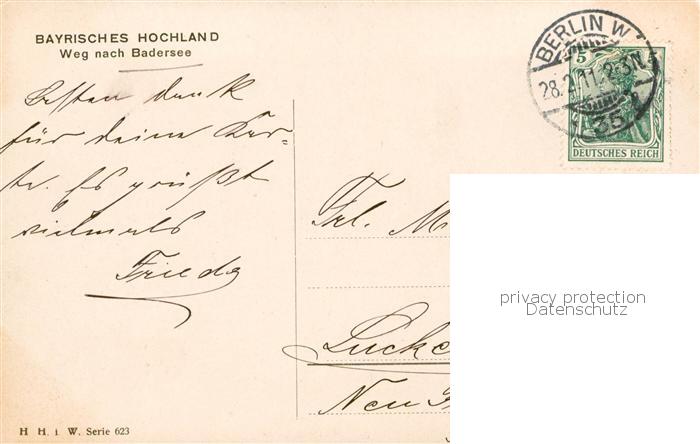 BAYRISCHES HOCHLAND
Weg nach Badersee
Besten Dank
für deine Kar=
te. Es grüßt
vielmals
Frieda
BERLIN W
28.2.11. 2-3N
35
5 5
DEUTSCHES REICH
Frl. M
Lucke
Neu
privacy protection
Datenschutz
H H. i. W. Serie 623